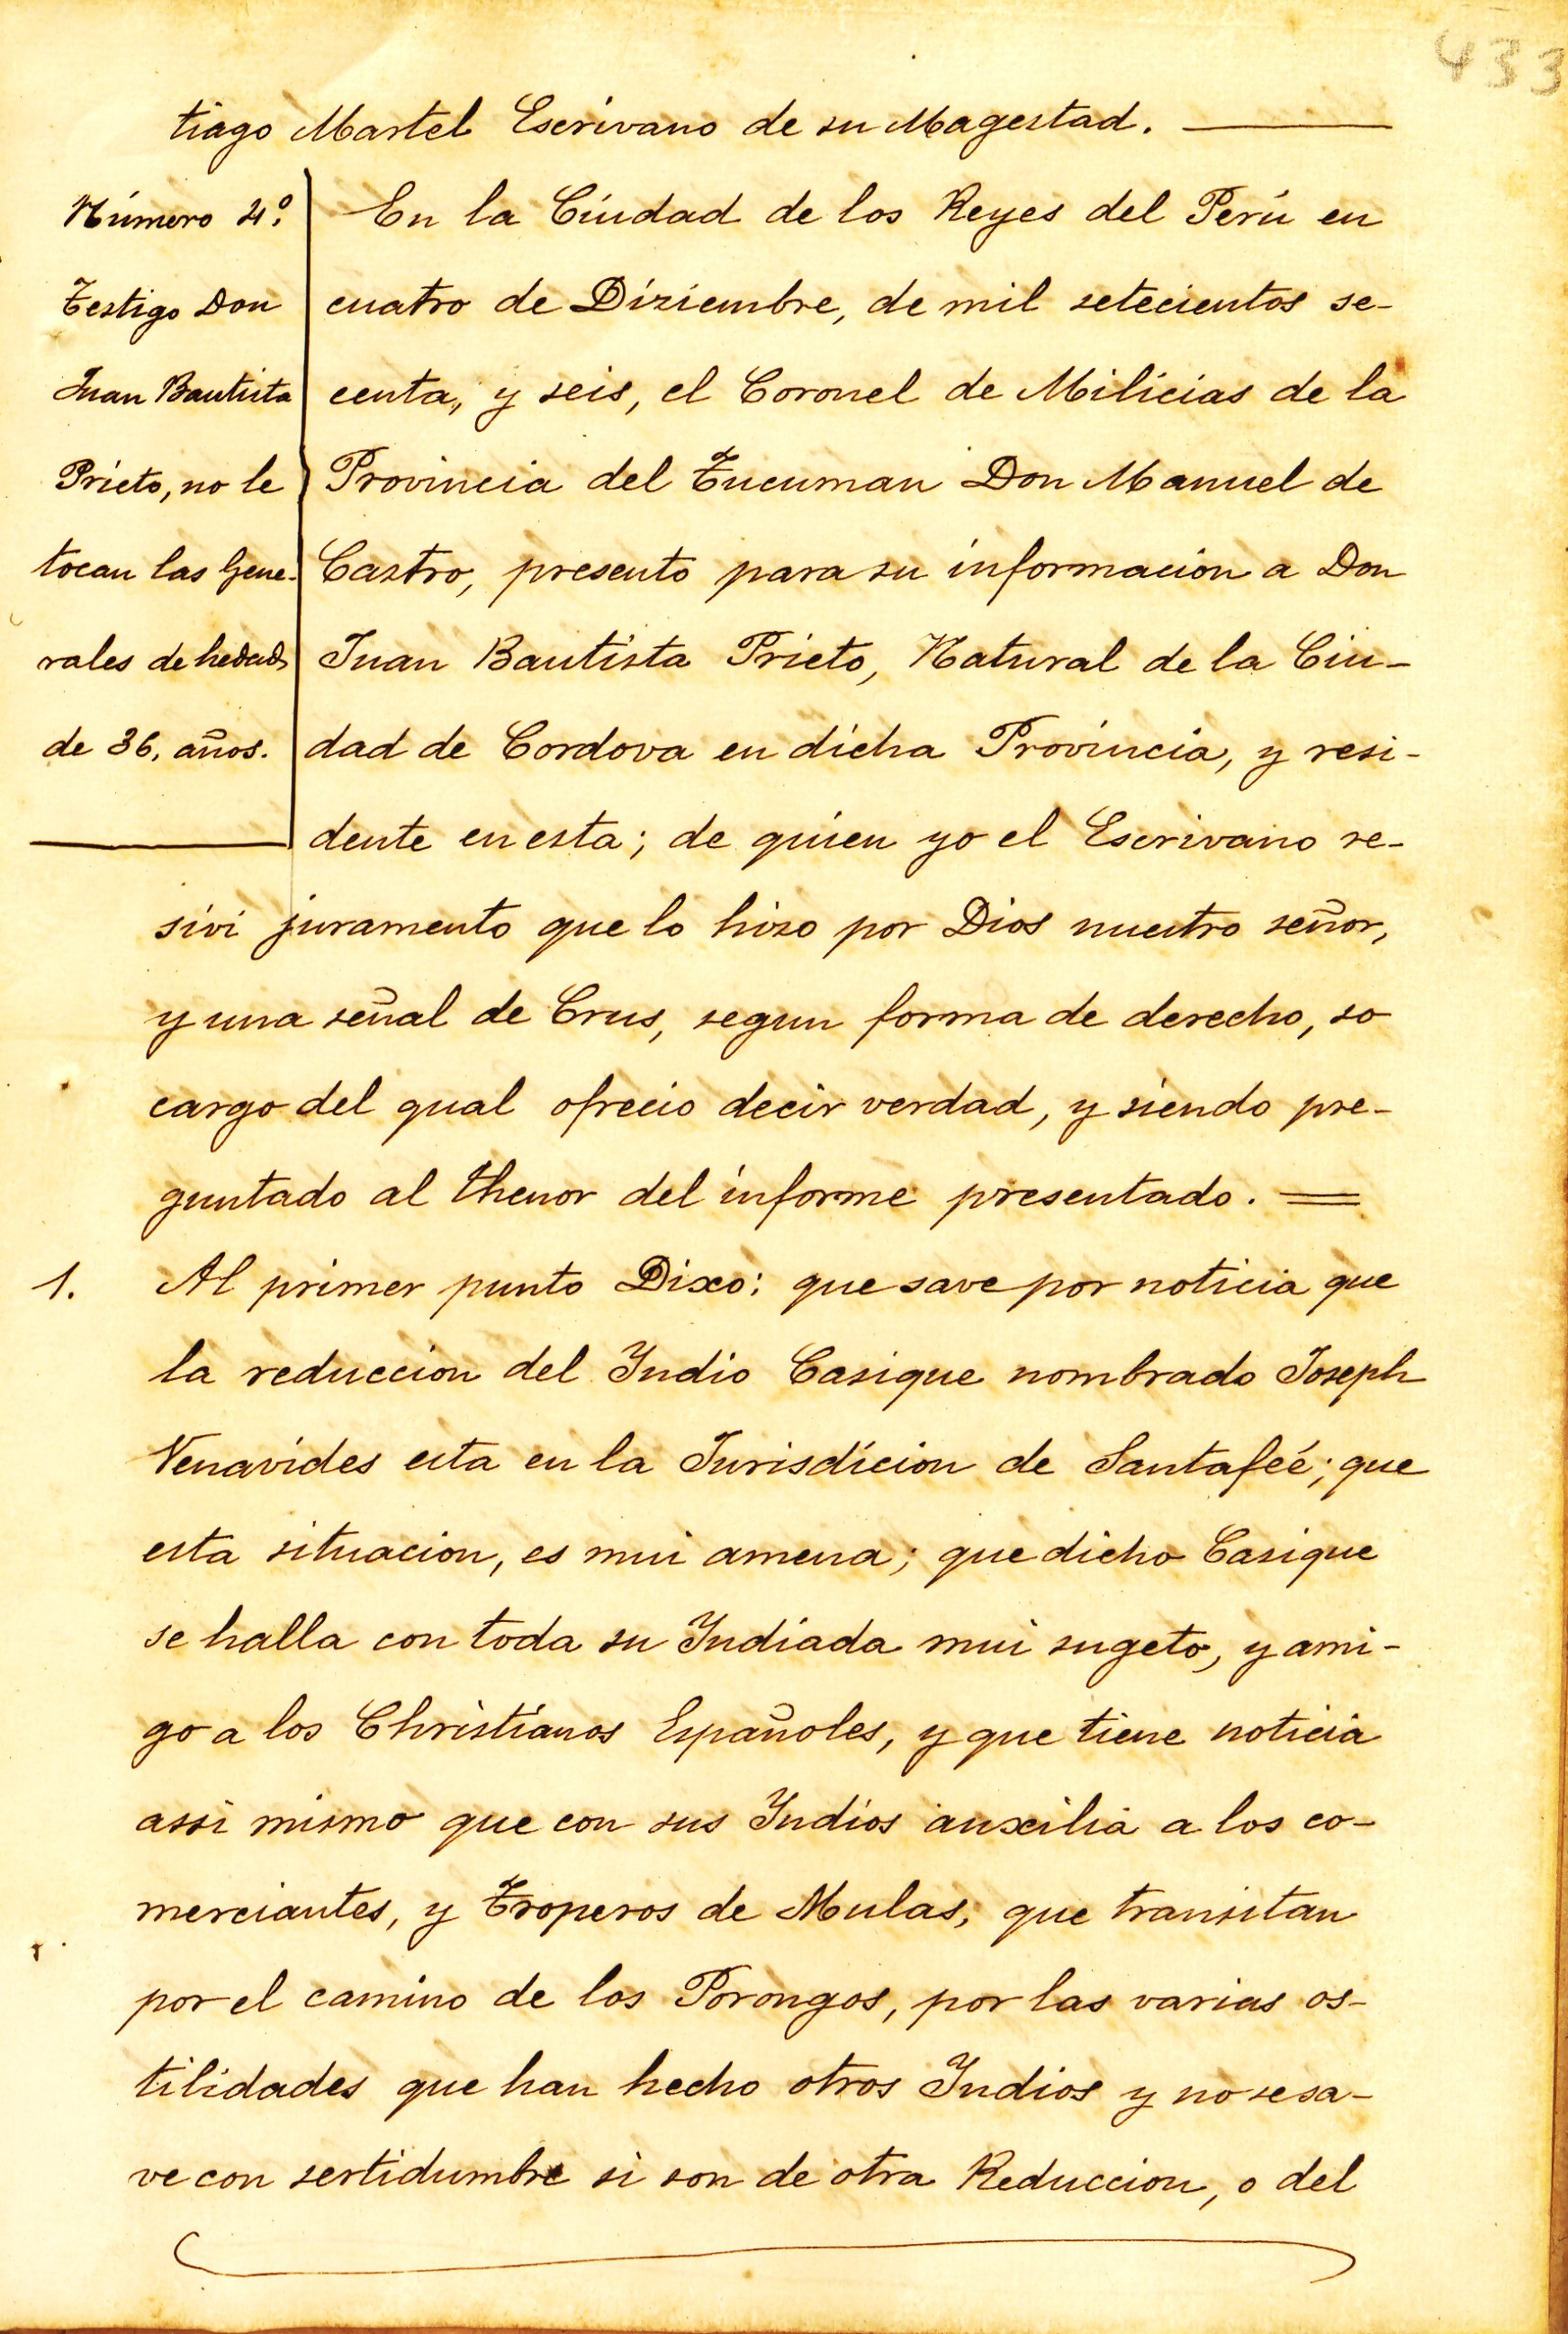 433
tiago Martel Escrivano de su Magestad.
Número 4º.
Testigo Don
Juan Bautista
Prieto, no le
tocan las Gene-
rales de hedad
de 36, años.
En la Ciudad de los Reyes del Perú en
cuatro de Diziembre, de mil setecientos se-
centa, y seis, el Coronel de Milicias de la
Provincia del Tucuman Don Manuel de
Castro, presento para su informacion a Don
Juan Bautista Prieto, Natural de la Ciu-
dad de Cordova en dicha Provincia, y resi-
dente en esta; de quien yo el Escrivano re-
sivi juramento que lo hizo por Dios nuestro señor,
y una señal de Crus, segun forma de derecho, so
cargo del qual ofrecio decir verdad, y siendo pre-
guntado al thenor del informe presentado. =
1. Al primer punto Dixo: que save por noticia que
la reduccion del Indio Casique nombrado Joseph
Venavides esta en la Jurisdicion de Santafeé; que
esta situacion, es mui amena; que dicho Casique
se halla con toda su Indiada mui sugeto, y ami-
go a los Christianos Españoles, y que tiene noticia
assi mismo que con sus Indios auxilia a los co-
merciantes, y Troperos de Mulas, que transitan
por el camino de los Porongos, por las varias os-
tilidades que han hecho otros Indios y no se sa-
ve con sertidumbre si son de otra Reduccion, o del